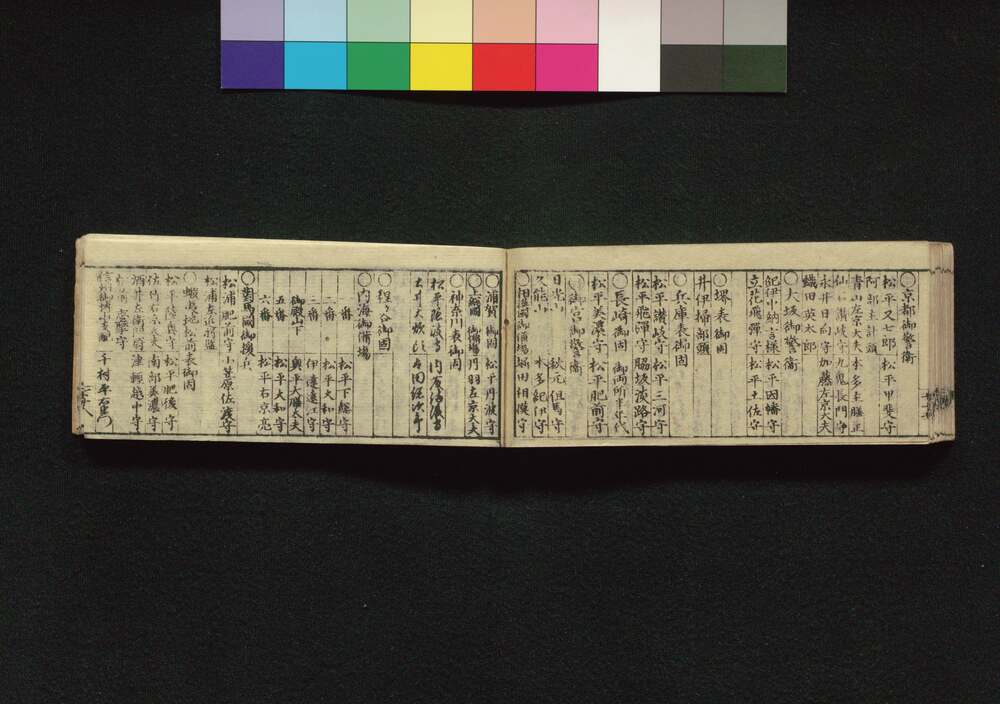 〇京都御警衛
松平又七郎 松平甲斐守
阿部主計頭
青山左京大夫 本多主膳正
仙石讃岐守 九鬼長門守
永井日向守 加藤左京大夫
織田英太郎
〇大坂御警衛
紀伊中納言様 松平因幡守
立花飛彈守 松平土佐守
〇堺表御固
井伊掃部頭
〇兵庫表御固
松平讃岐守 松平三河守
松平飛彈守 脇坂淡路守
〇長崎御固 御両所半年代
松平美濃守 松平肥前守
日光山 秋元但馬守
久能山 本多紀伊守
堀田相模守
〇浦賀 御固 松平丹波守
御備場 丹羽左京大夫
〇神奈川表御固
松平隠岐守
〇程ヶ谷御固
〇内海御備場
一番 松平下総守
二番 松平大和守
三番 伊達遠江守
御殿山下 奥平大膳大夫
五番 松平大和守
六番 松平右京亮
〇對馬國御援兵
松浦肥前守 小笠原佐渡守
松浦左近将監
〇蝦夷地松前表御固
松平陸奥守 松平肥後守
佐竹右京大夫 南部美濃守
酒井左衛門尉 津輕越中守
千村平右衛門